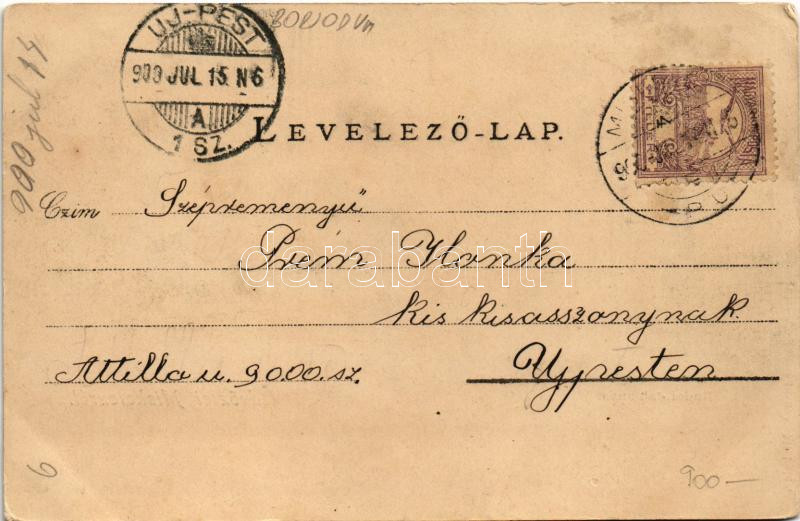 BORSOD Vm
UJ-PEST
900 JUL 15. N6
A
1 SZ.
900 júl 14
LEVELEZŐ-LAP.
Czim Szépreményű
Prém Ilonka
kis kisasszonynak
Attilla u. 9000. sz.
Ujpesten
darabanth
6
900—